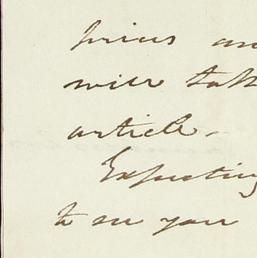 prices an
will take
article.
Expecting
to see you